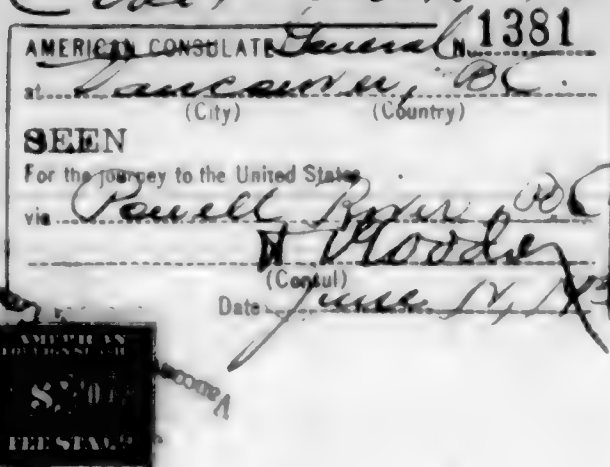 AMERICAN CONSULATE General No. 1381
at Vancouver, BC.
(City) (Country)
SEEN
For the journey to the United States
via Powell River, BC
(Consul)
Date June
AMERICAN
FOREIGN SERVICE
$2.00
FEE STAMP
Vancou